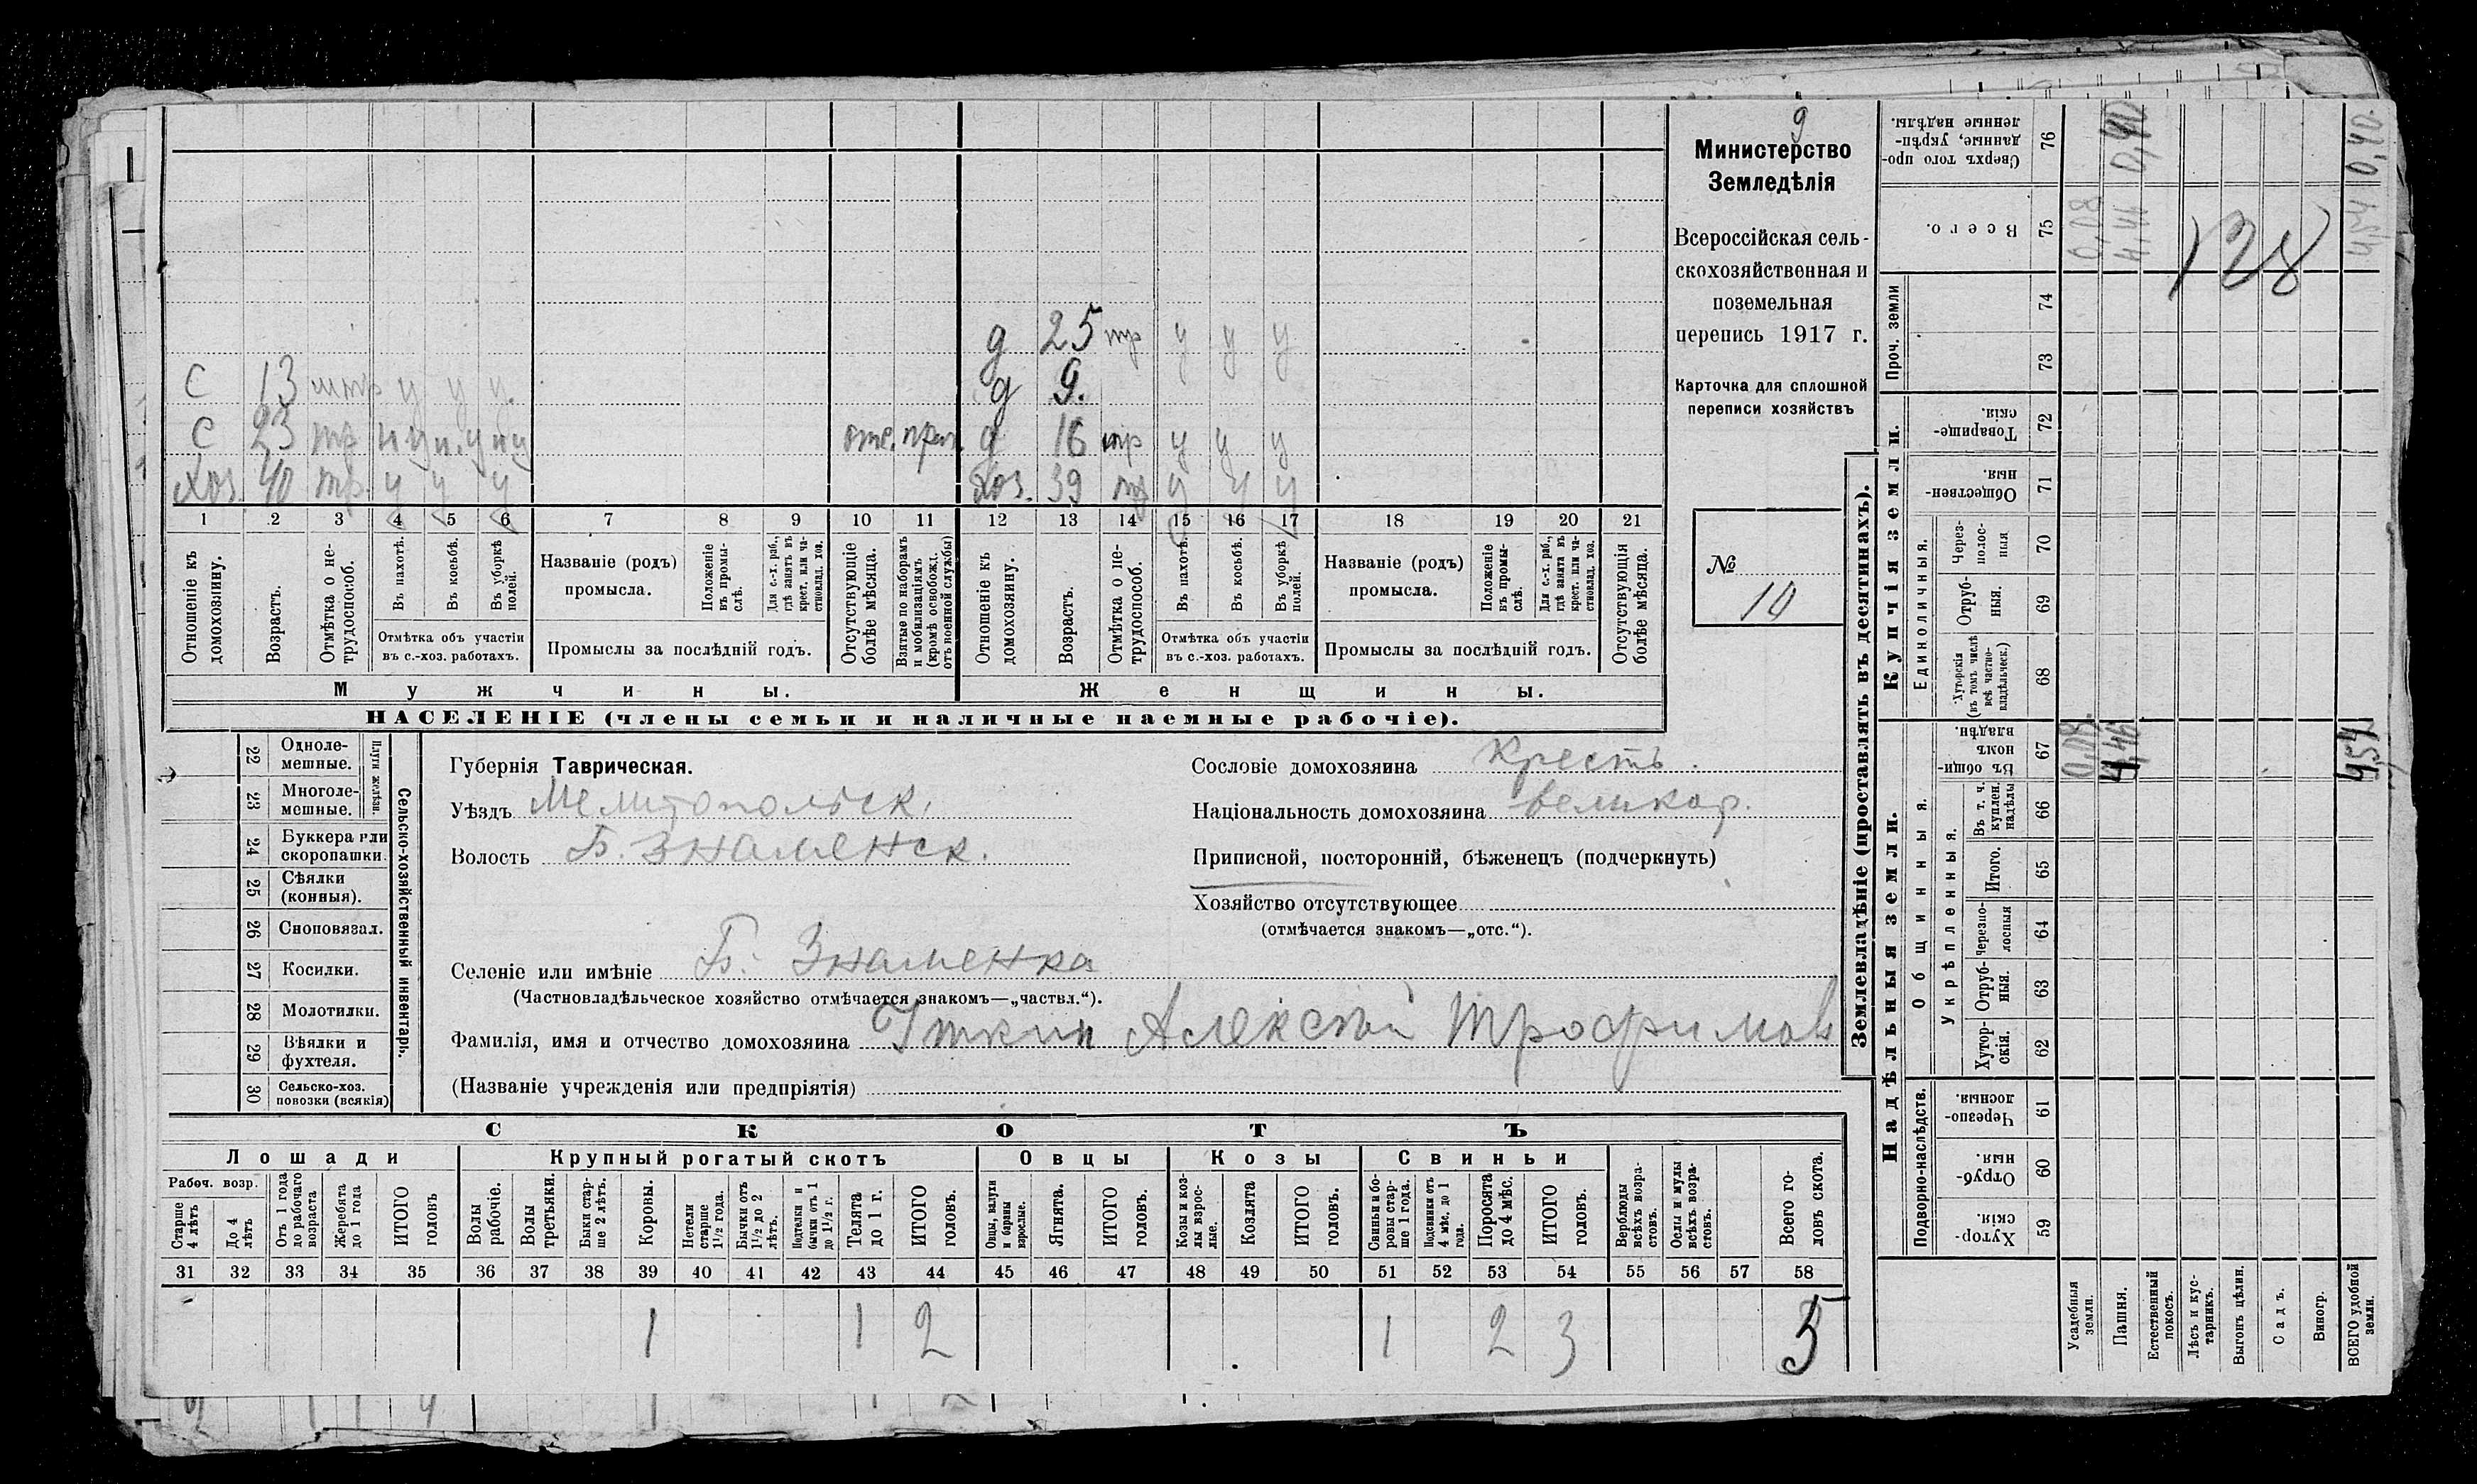 9
Министерство
Земледѣлія
Всероссійская сель-
скохозяйственная и
поземельная
перепись 1917 г.
Карточка для сплошной
переписи хозяйствъ
№
10
д 25 тр у у у
С 13 у у у.
д 9.
С 23 тр отс. д 16 тр у у у
Хоз. 40 тр. у у у
Хоз. 39 тр у у у
1 2 3 4 5 6 7 8 9 10 11 12 13 14 15 16 17 18 19 20 21
Отношеніе къ домохозяину.
Возрастъ.
Отмѣтка о не-трудоспособ.
Въ пахотѣ.
Въ косьбѣ.
Въ уборкѣ полей.
Отмѣтка объ участіи въ с.-хоз. работахъ.
Названіе (родъ) промысла.
Положеніе въ промы-слѣ.
Для с.-х. раб., гдѣ занятъ въ крест. или ча-стновлад. хоз.
Промыслы за послѣдній годъ.
Отсутствующіе болѣе мѣсяца.
Взятые по наборамъ и мобилизаціямъ (кромѣ освобожд. отъ военной службы)
Отношеніе къ домохозяину.
Возрастъ.
Отмѣтка о не-трудоспособ.
Въ пахотѣ.
Въ косьбѣ.
Въ уборкѣ полей.
Отмѣтка объ участіи въ с.-хоз. работахъ.
Названіе (родъ) промысла.
Положеніе въ промы-слѣ.
Для с.-х. раб., гдѣ занята въ крест. или ча-стновлад. хоз.
Промыслы за послѣдній годъ.
Отсутствующія болѣе мѣсяца.
Мужчины. Женщины.
НАСЕЛЕНІЕ (члены семьи и наличные наемные рабочіе).
22 Одноле-мешные.
23 Многоле-мешные.
Плуги желѣзн.
24 Буккера или скоропашки.
25 Сѣялки (конныя).
26 Сноповязал.
27 Косилки.
28 Молотилки.
29 Вѣялки и фухтеля.
30 Сельско-хоз. повозки (всякія)
Сельско-хозяйственный инвентарь.
Губернія Таврическая.
Уѣздъ Мелитопольск.
Волость Б. Знаменск.
Селеніе или имѣніе Б. Знаменка
(Частновладѣльческое хозяйство отмѣчается знакомъ—„частвл.“).
Фамилія, имя и отчество домохозяина Уткин Алексѣй Трофимов
(Названіе учрежденія или предпріятія)
Сословіе домохозяина Кресть.
Національность домохозяина великор.
Приписной, посторонній, бѣженецъ (подчеркнуть)
Хозяйство отсутствующее
(отмѣчается знакомъ—„отс.“).
СКОТЪ
Лошади Крупный рогатый скотъ Овцы Козы Свиньи
Рабоч. возр.
Старше 4 лѣтъ
До 4 лѣтъ
Отъ 1 года до рабочаго возраста
Жеребята до 1 года
ИТОГО головъ
Волы рабочіе.
Волы третьяки.
Быки стар-ше 2 лѣтъ.
Коровы.
Нетели старше 1½ года.
Бычки отъ 1½ до 2 лѣтъ.
Подтелки и бычки отъ 1 до 1½ г.
Телята до 1 г.
ИТОГО головъ.
Овцы, валухи и бараны взрослые.
Ягнята.
ИТОГО головъ.
Козы и коз-лы взрос-лые.
Козлята
ИТОГО головъ.
Свиньи и бо-ровы стар-ше 1 года.
Подсвинки отъ 4 мѣс. до 1 года.
Поросята до 4 мѣс.
ИТОГО головъ.
Верблюды всѣхъ возра-стовъ.
Ослы и мулы всѣхъ возра-стовъ.
Всего го-ловъ скота.
31 32 33 34 35 36 37 38 39 40 41 42 43 44 45 46 47 48 49 50 51 52 53 54 55 56 57 58
1 1 2 1 2 3 5
Землевладѣніе (проставлять въ десятинахъ).
Купчія земли.
Надѣльныя земли.
Сверхъ того про-данные, укрѣп-ленные надѣлы. 76 0,40 0,40.
Всего. 75 0,08 4,46 4,54
128
Проч. земли 74 73
Товарище-скія. 72
Обществен-ныя. 71
Единоличныя.
Через-полос-ныя 70
Отруб-ныя. 69
Хуторскія (въ томъ числѣ всѣ частно-владѣльческ.) 68
Общинныя.
Въ общин-номъ владѣн. 67 0,08. 4,46 4,54
Укрѣпленныя.
Въ т. ч. куплен. надѣлы 66
Итого. 65
Черезпо-лосныя 64
Отруб-ныя. 63
Хутор-скія. 62
Подворно-наслѣдств.
Черезпо-лосныя. 61
Отруб-ныя. 60
Хутор-скія. 59
Усадебныя земли.
Пашня.
Естественный покосъ.
Лѣсъ и кус-тарникъ.
Выгонъ цѣлин.
Садъ.
Виногр.
ВСЕГО удобной земли.